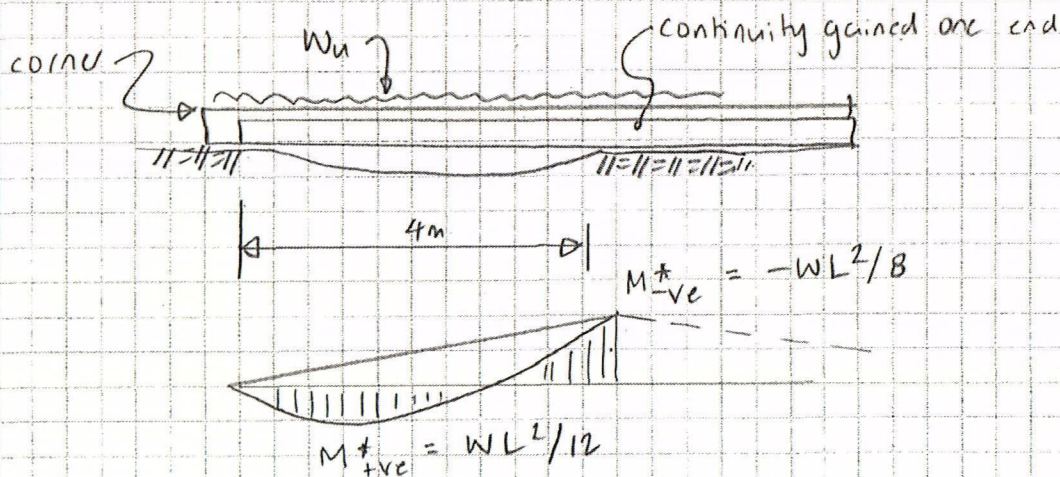 corner
Wu
continuity gained one end.
4m
M*-ve = -WL²/8
M*+ve = WL²/12